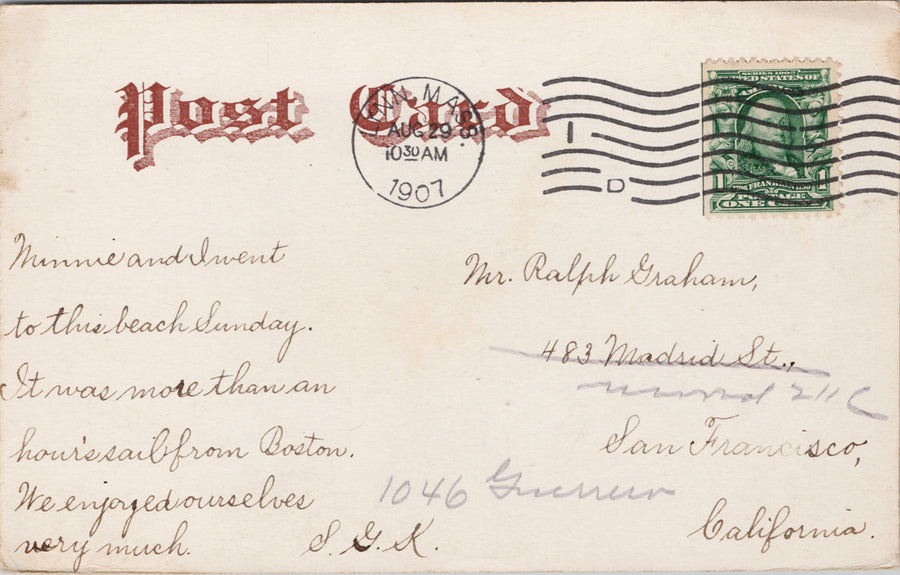 Post Card
LYNN, MASS.
AUG 29
10 30 AM
1907
1
D
SERIES 1902
UNITED STATES OF
FRANKLIN
1 1
POSTAGE
ONE CENT
Minnie and I went
to this beach Sunday.
It was more than an
hour's sail from Boston.
We enjoyed ourselves
very much. S. G. K.
Mr. Ralph Graham,
483 Madrid St.,
moved 211 C
San Francisco,
1046 Guerrero
California.